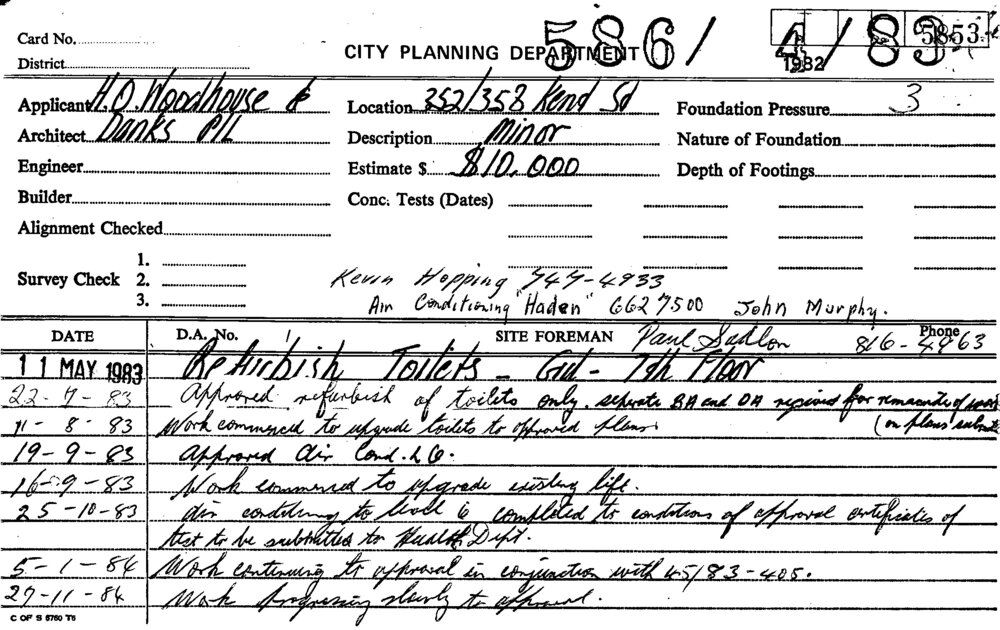 586/4/83
5853
Card No.
CITY PLANNING DEPARTMENT
1982
District
Applicant H.O. Woodhouse &
Location 352/358 Kent St
Foundation Pressure 3
Architect Danks P/L
Description Minor
Nature of Foundation
Engineer
Estimate $ $10,000
Depth of Footings
Builder
Conc. Tests (Dates)
Alignment Checked
Survey Check 1.
2.
3.
Kevin Hopping 747-4933
Air Conditioning "Haden" 6627500 John Murphy.
DATE D.A. No. SITE FOREMAN Paul Sadlon Phone 816-4963
11 MAY 1983 Refurbish Toilets - Gnd - 7th Floor
22-7-83 Approved refurbish of toilets only. seperate BA and DA required for remainder of work
(on plans submitted
11-8-83 Work commenced to upgrade toilets to approved plans
19-9-83 Approved Air Cond. L6.
16-9-83 Work commenced to upgrade existing lift.
25-10-83 Air conditioning to level 6 completed to conditions of approval certificates of
test to be submitted to Health Dept.
5-1-84 Work continuing to approval in conjunction with 45/83-405.
27-11-84 Work progressing slowly to approval.
C OF S 5760 T5